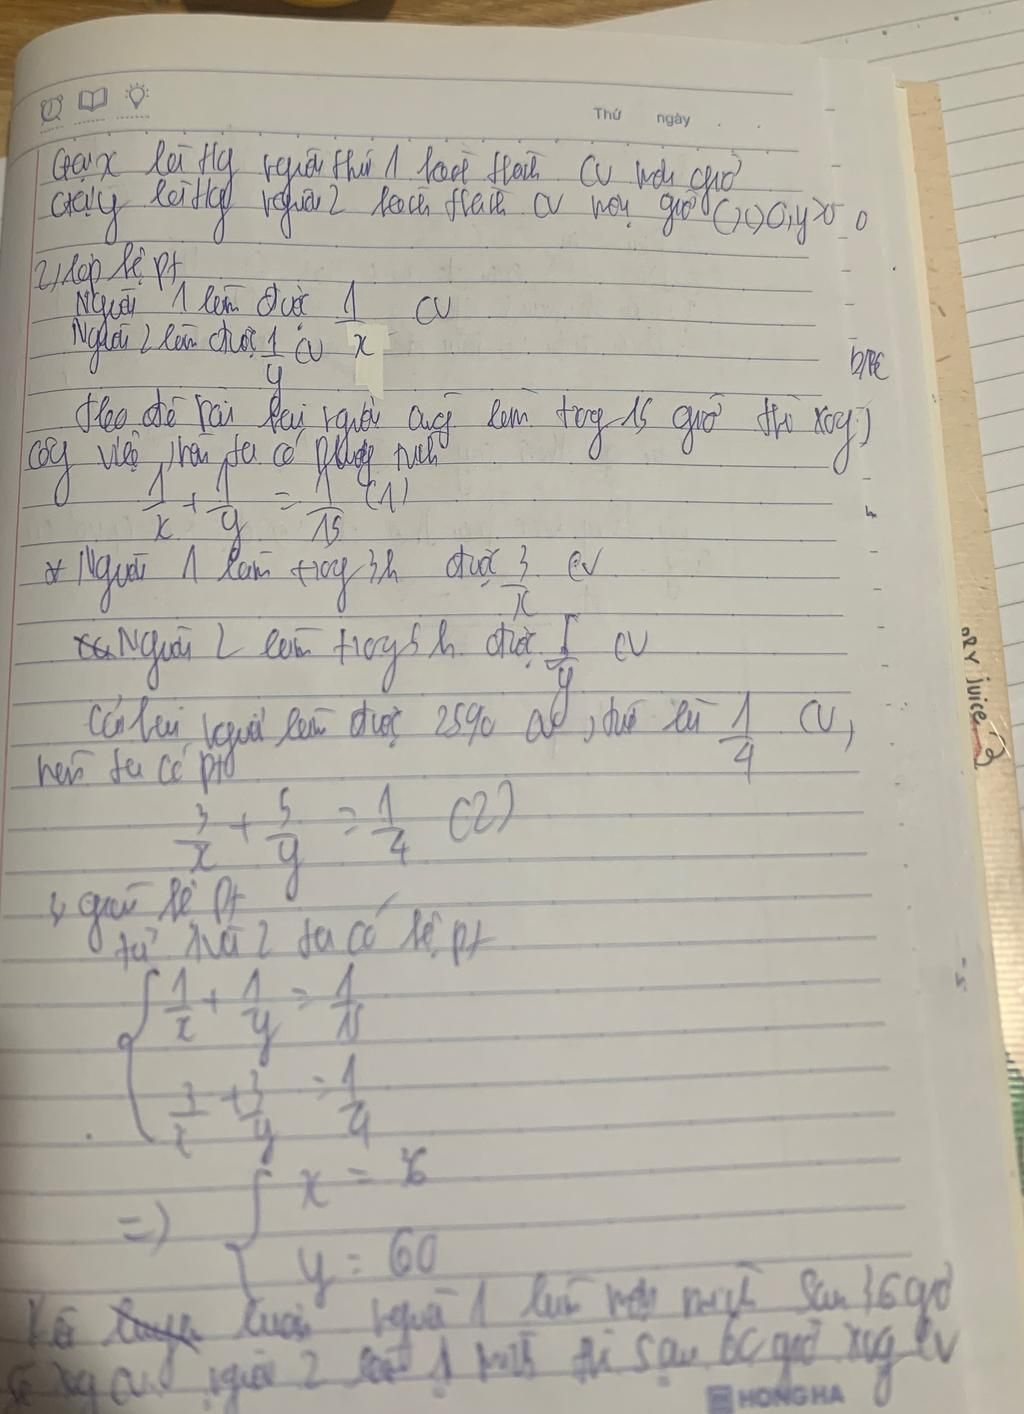 Thứ ngày
Gọi x là tg người thứ 1 hoàn thành CV mấy giờ
Gọi y là tg người 2 hoàn thành CV mấy giờ (x>0, y>0
2, lập hệ pt
Người 1 làm được 1/x CV
Người 2 làm được 1/y CV
theo đề bài hai người cùng làm trong 15 giờ thì xong
công việc, nên ta có phương trình
1/x + 1/y = 1/15 (1)
* Người 1 làm trong 3h được 3/x CV
Người 2 làm trong 5h được 5/y CV
Cả hai người làm được 25% CV, tức là 1/4 CV,
nên ta có pt
3/x + 5/y = 1/4 (2)
giải hệ pt
từ 1 và 2 ta có hệ pt
1/x + 1/y = 1/15
3/x + 3/y = 1/4
=> x =
y = 60
Kết luận người 1 làm một mình sau 36 giờ
xong CV người 2 làm 1 mình thì sau 60 giờ xong CV
HONG HA
ORY juice